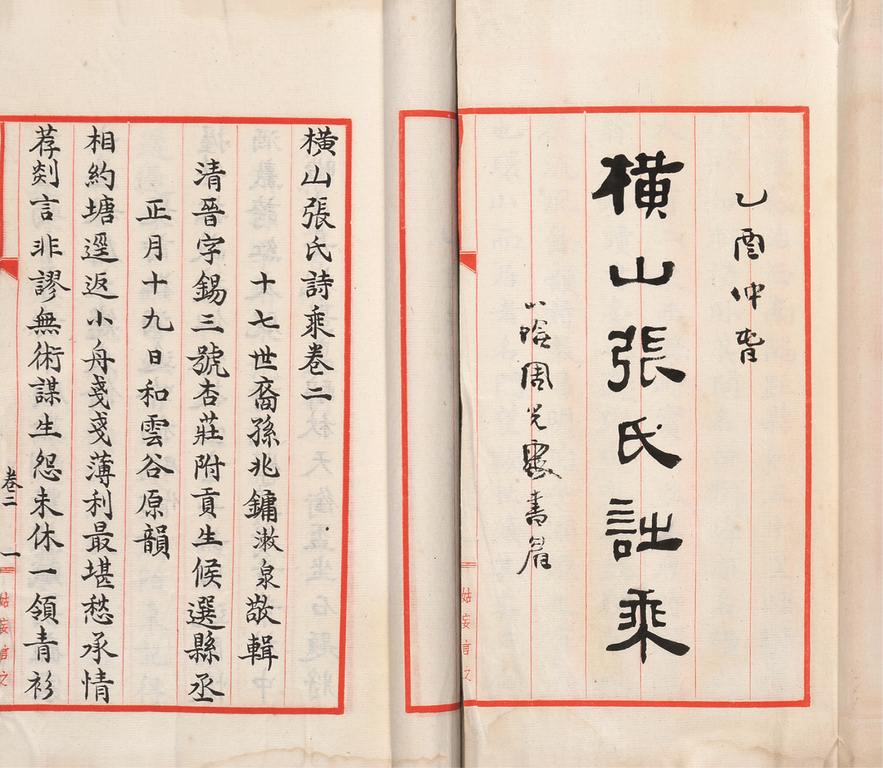 乙酉仲春
橫山張氏詩乘
周光熙書眉
姑妄言之
橫山張氏詩乘卷二
十七世裔孫兆鏞漱泉敬輯
清晉字錫三號杏莊附貢生候選縣丞
正月十九日和雲谷原韻
相約塘遥返小舟戔戔薄利最堪愁承情
荐剡言非謬無術謀生怨未休一領青衫
卷二 一
姑妄言之